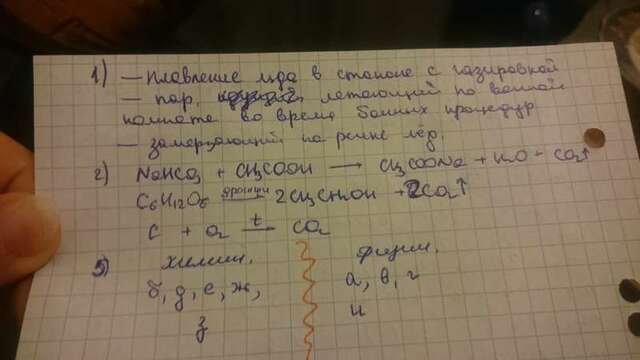 1) — плавление льда в стакане с газировкой
— пар, летающий по ванной
комнате во время банных процедур
— замерзающий на реке лёд.
2) NaHCO3 + CH3COOH → CH3COONa + H2O + CO2↑
C6H12O6 дрожжи→ 2C2H5OH + 2CO2↑
C + O2 t→ CO2
3) химич. физич.
б, д, е, ж, а, в, г
з и